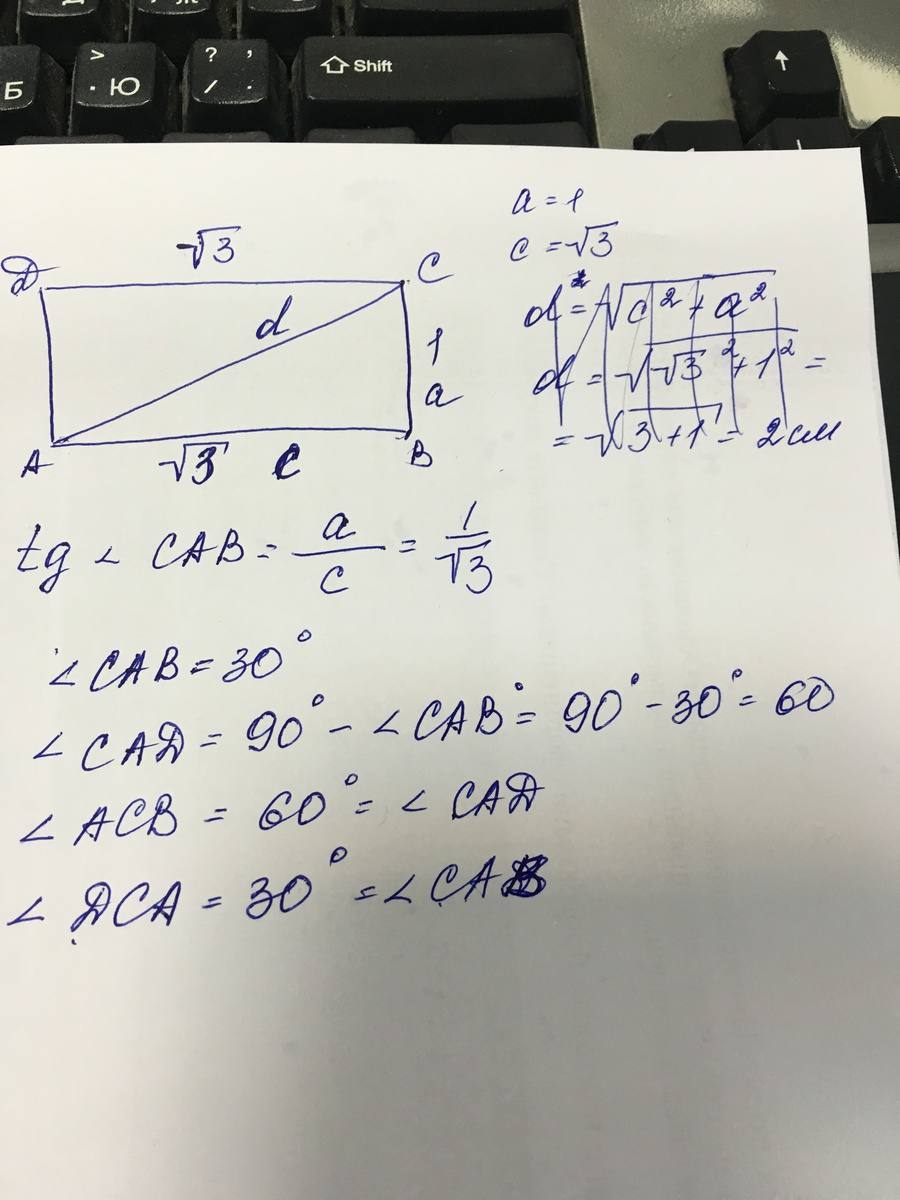 Б
> . Ю
? , / .
⇧ Shift
↑
a = 1
c = √3
√3
D
C
d
1
a
A
√3 c
B
d² = √c² + a²
d = √√3² + 1² =
= √3 + 1 = 2 см
tg ∠ CAB = a/c = 1/√3
∠ CAB = 30°
∠ CAD = 90° - ∠ CAB° = 90° - 30° = 60
∠ ACB = 60° = ∠ CAD
∠ DCA = 30° = ∠ CAB